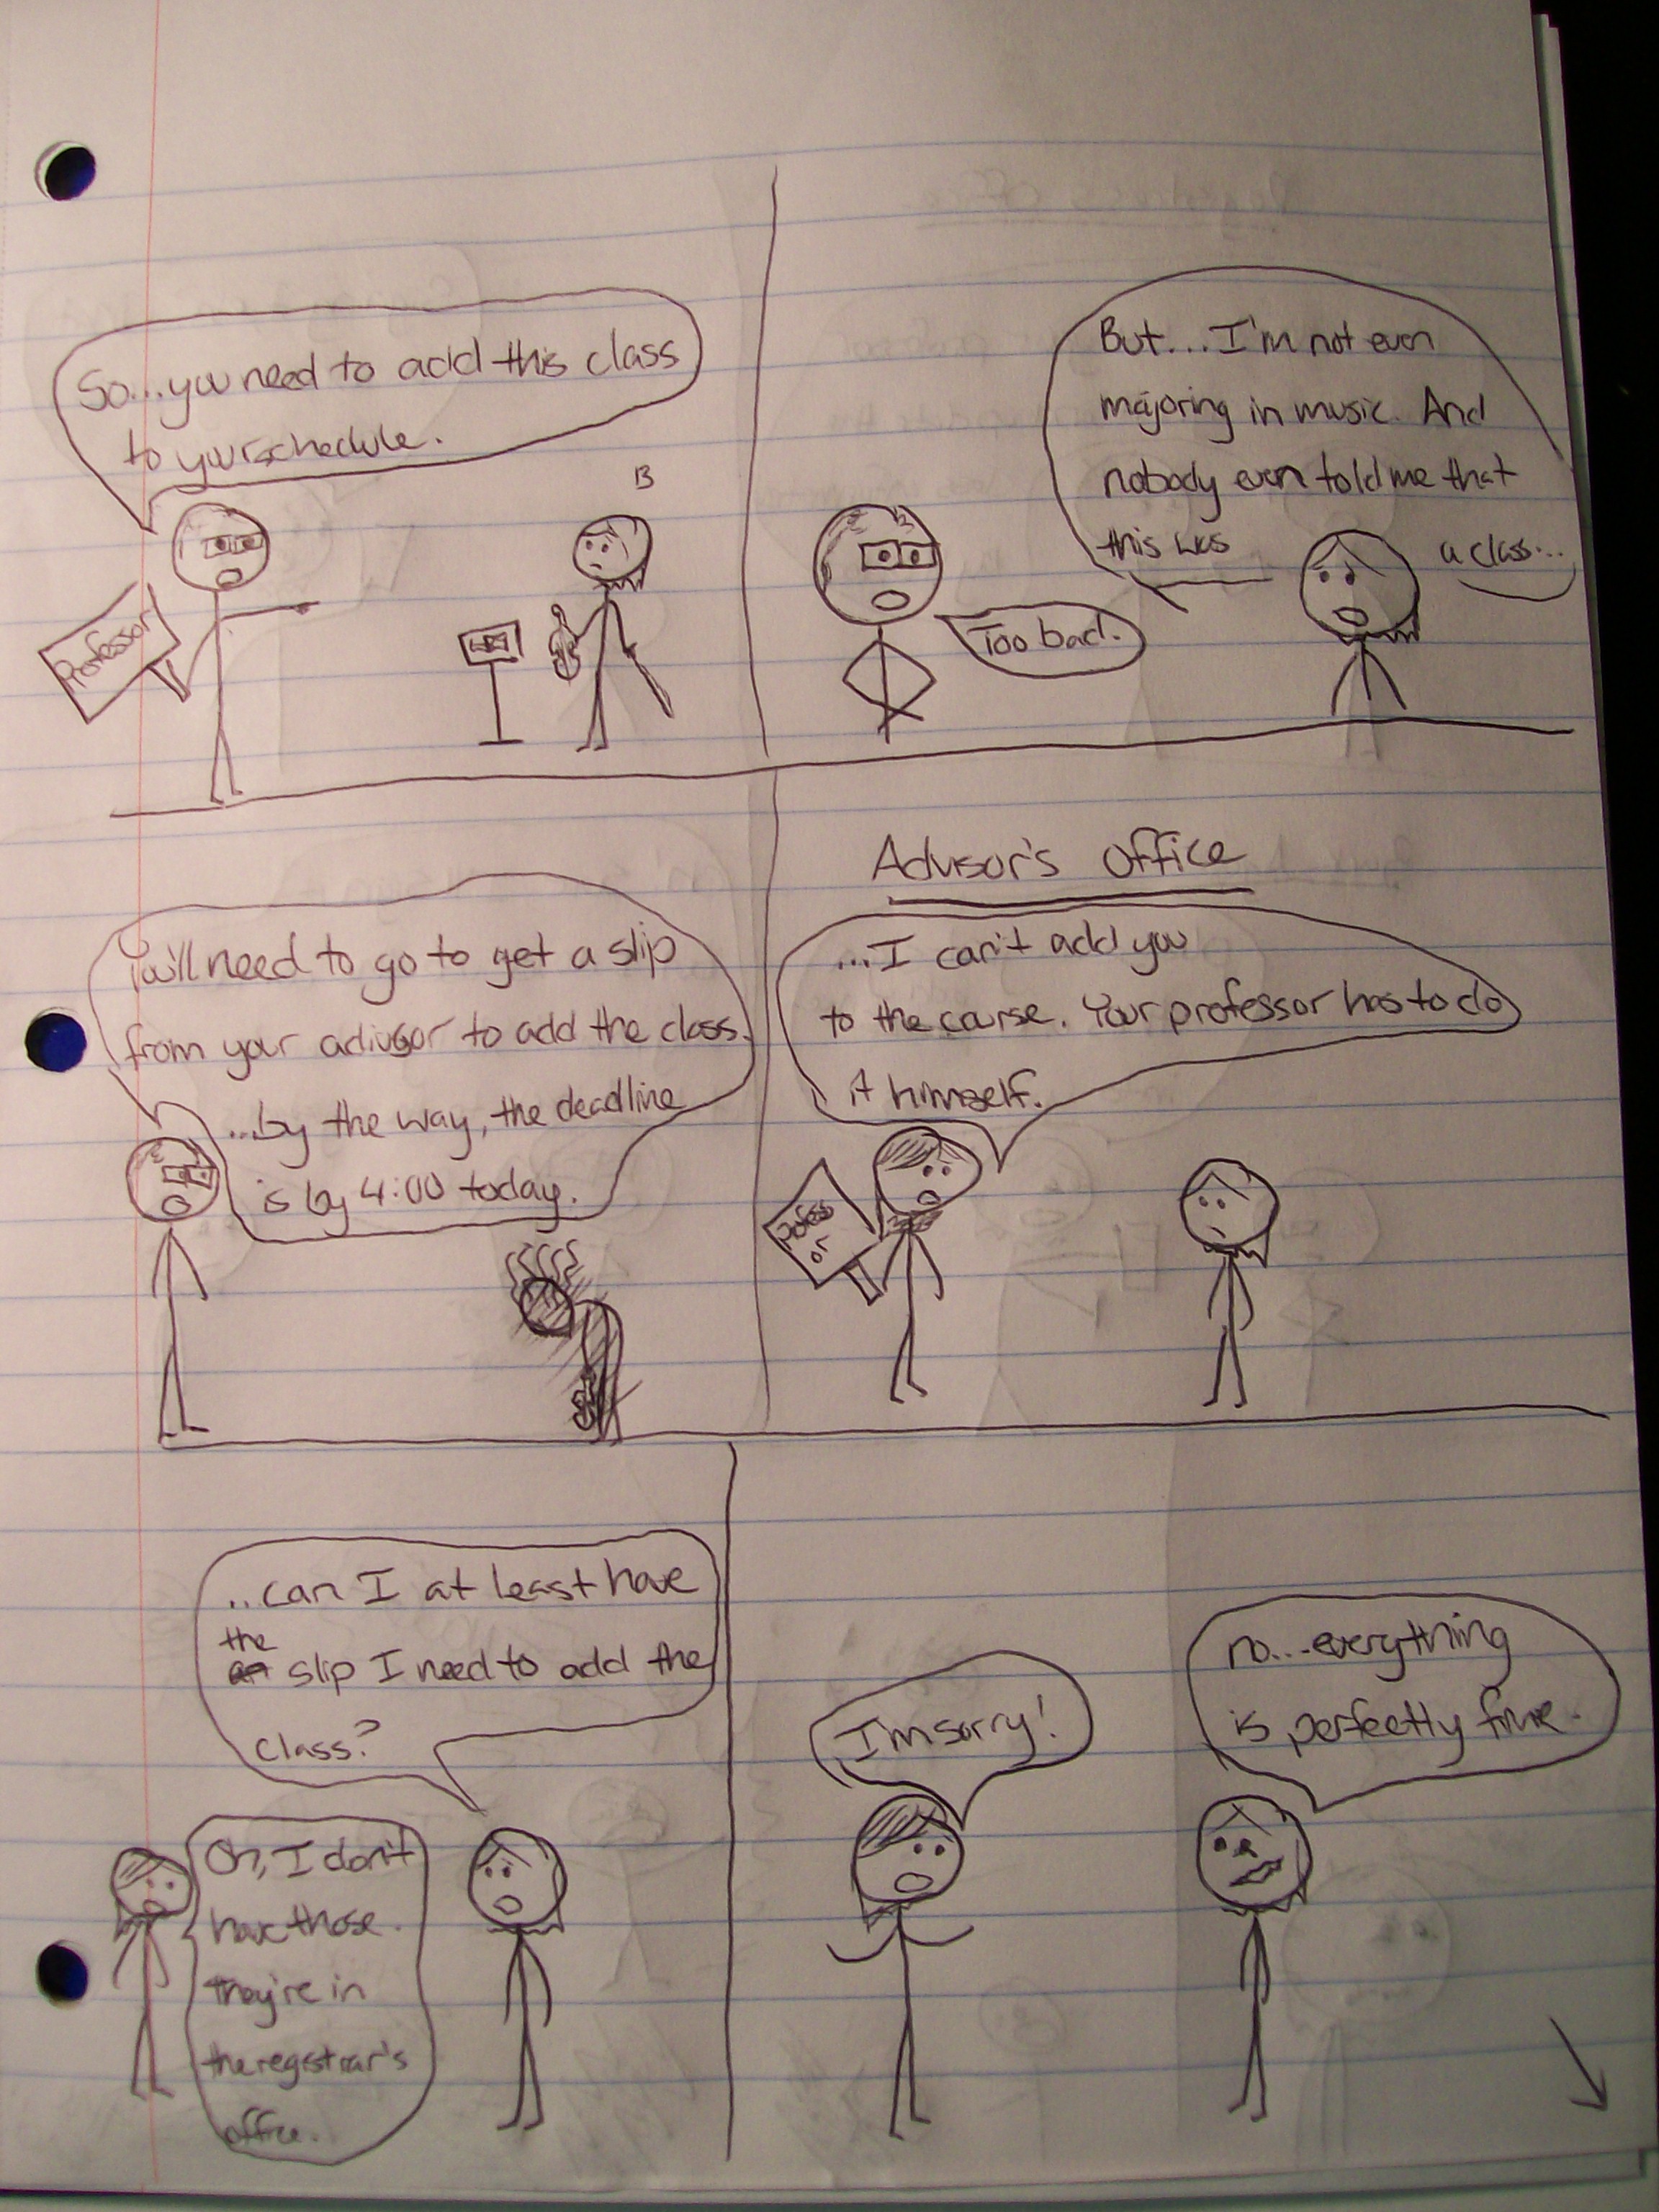 So...you need to add this class
to your schedule.
Professor
B
But...I'm not even
majoring in music. And
nobody even told me that
this was a class...
Too bad.
You'll need to go to get a slip
from your advisor to add the class.
...by the way, the deadline
is by 4:00 today.
Advisor's Office
...I can't add you
to the course. Your professor has to do
it himself.
Profess
or
..can I at least have
the
slip I need to add the
class?
Oh, I don't
have those.
they're in
the registrar's
office.
I'm sorry!
no...everything
is perfectly fine.